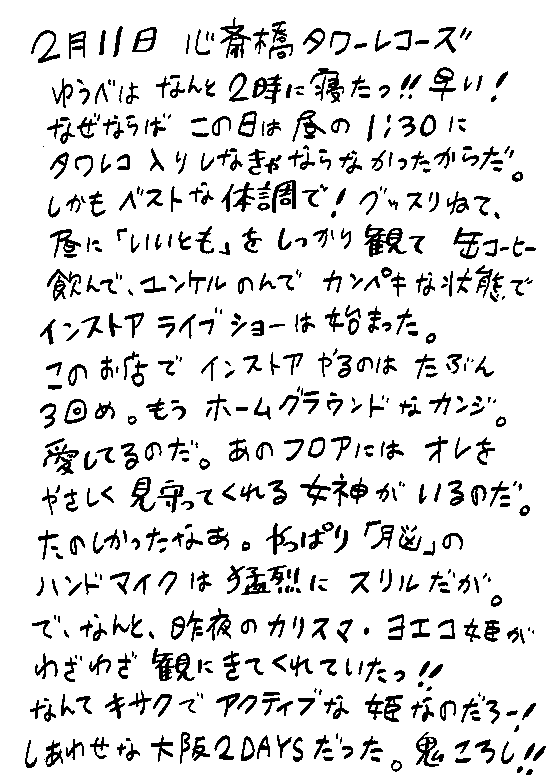 2月11日 心斎橋タワーレコーズ
ゆうべは なんと 2時に寝たっ!! 早い!
なぜならば この日は 昼の 1:30に
タワレコ入りしなきゃならなかったからだ。
しかも ベストな体調で! グッスリねて、
昼に「いいとも」を しっかり観て 缶コーヒー
飲んで、ユンケルのんで カンペキな状態で
インストア ライブショーは 始まった。
このお店で インストア やるのは たぶん
3回め。もう ホームグラウンドなカンジ。
愛してるのだ。あのフロアには オレを
やさしく見守ってくれる 女神が いるのだ。
たのしかったなあ。やっぱり「脳」の
ハンドマイクは 猛烈に スリルだが。
で、なんと、昨夜のカリスマ・ヨエコ姫が
わざわざ 観にきてくれていたっ!!
なんて キサクで アクティブな 姫なのだろー!
しあわせな 大阪2DAYSだった。鬼ころし!!